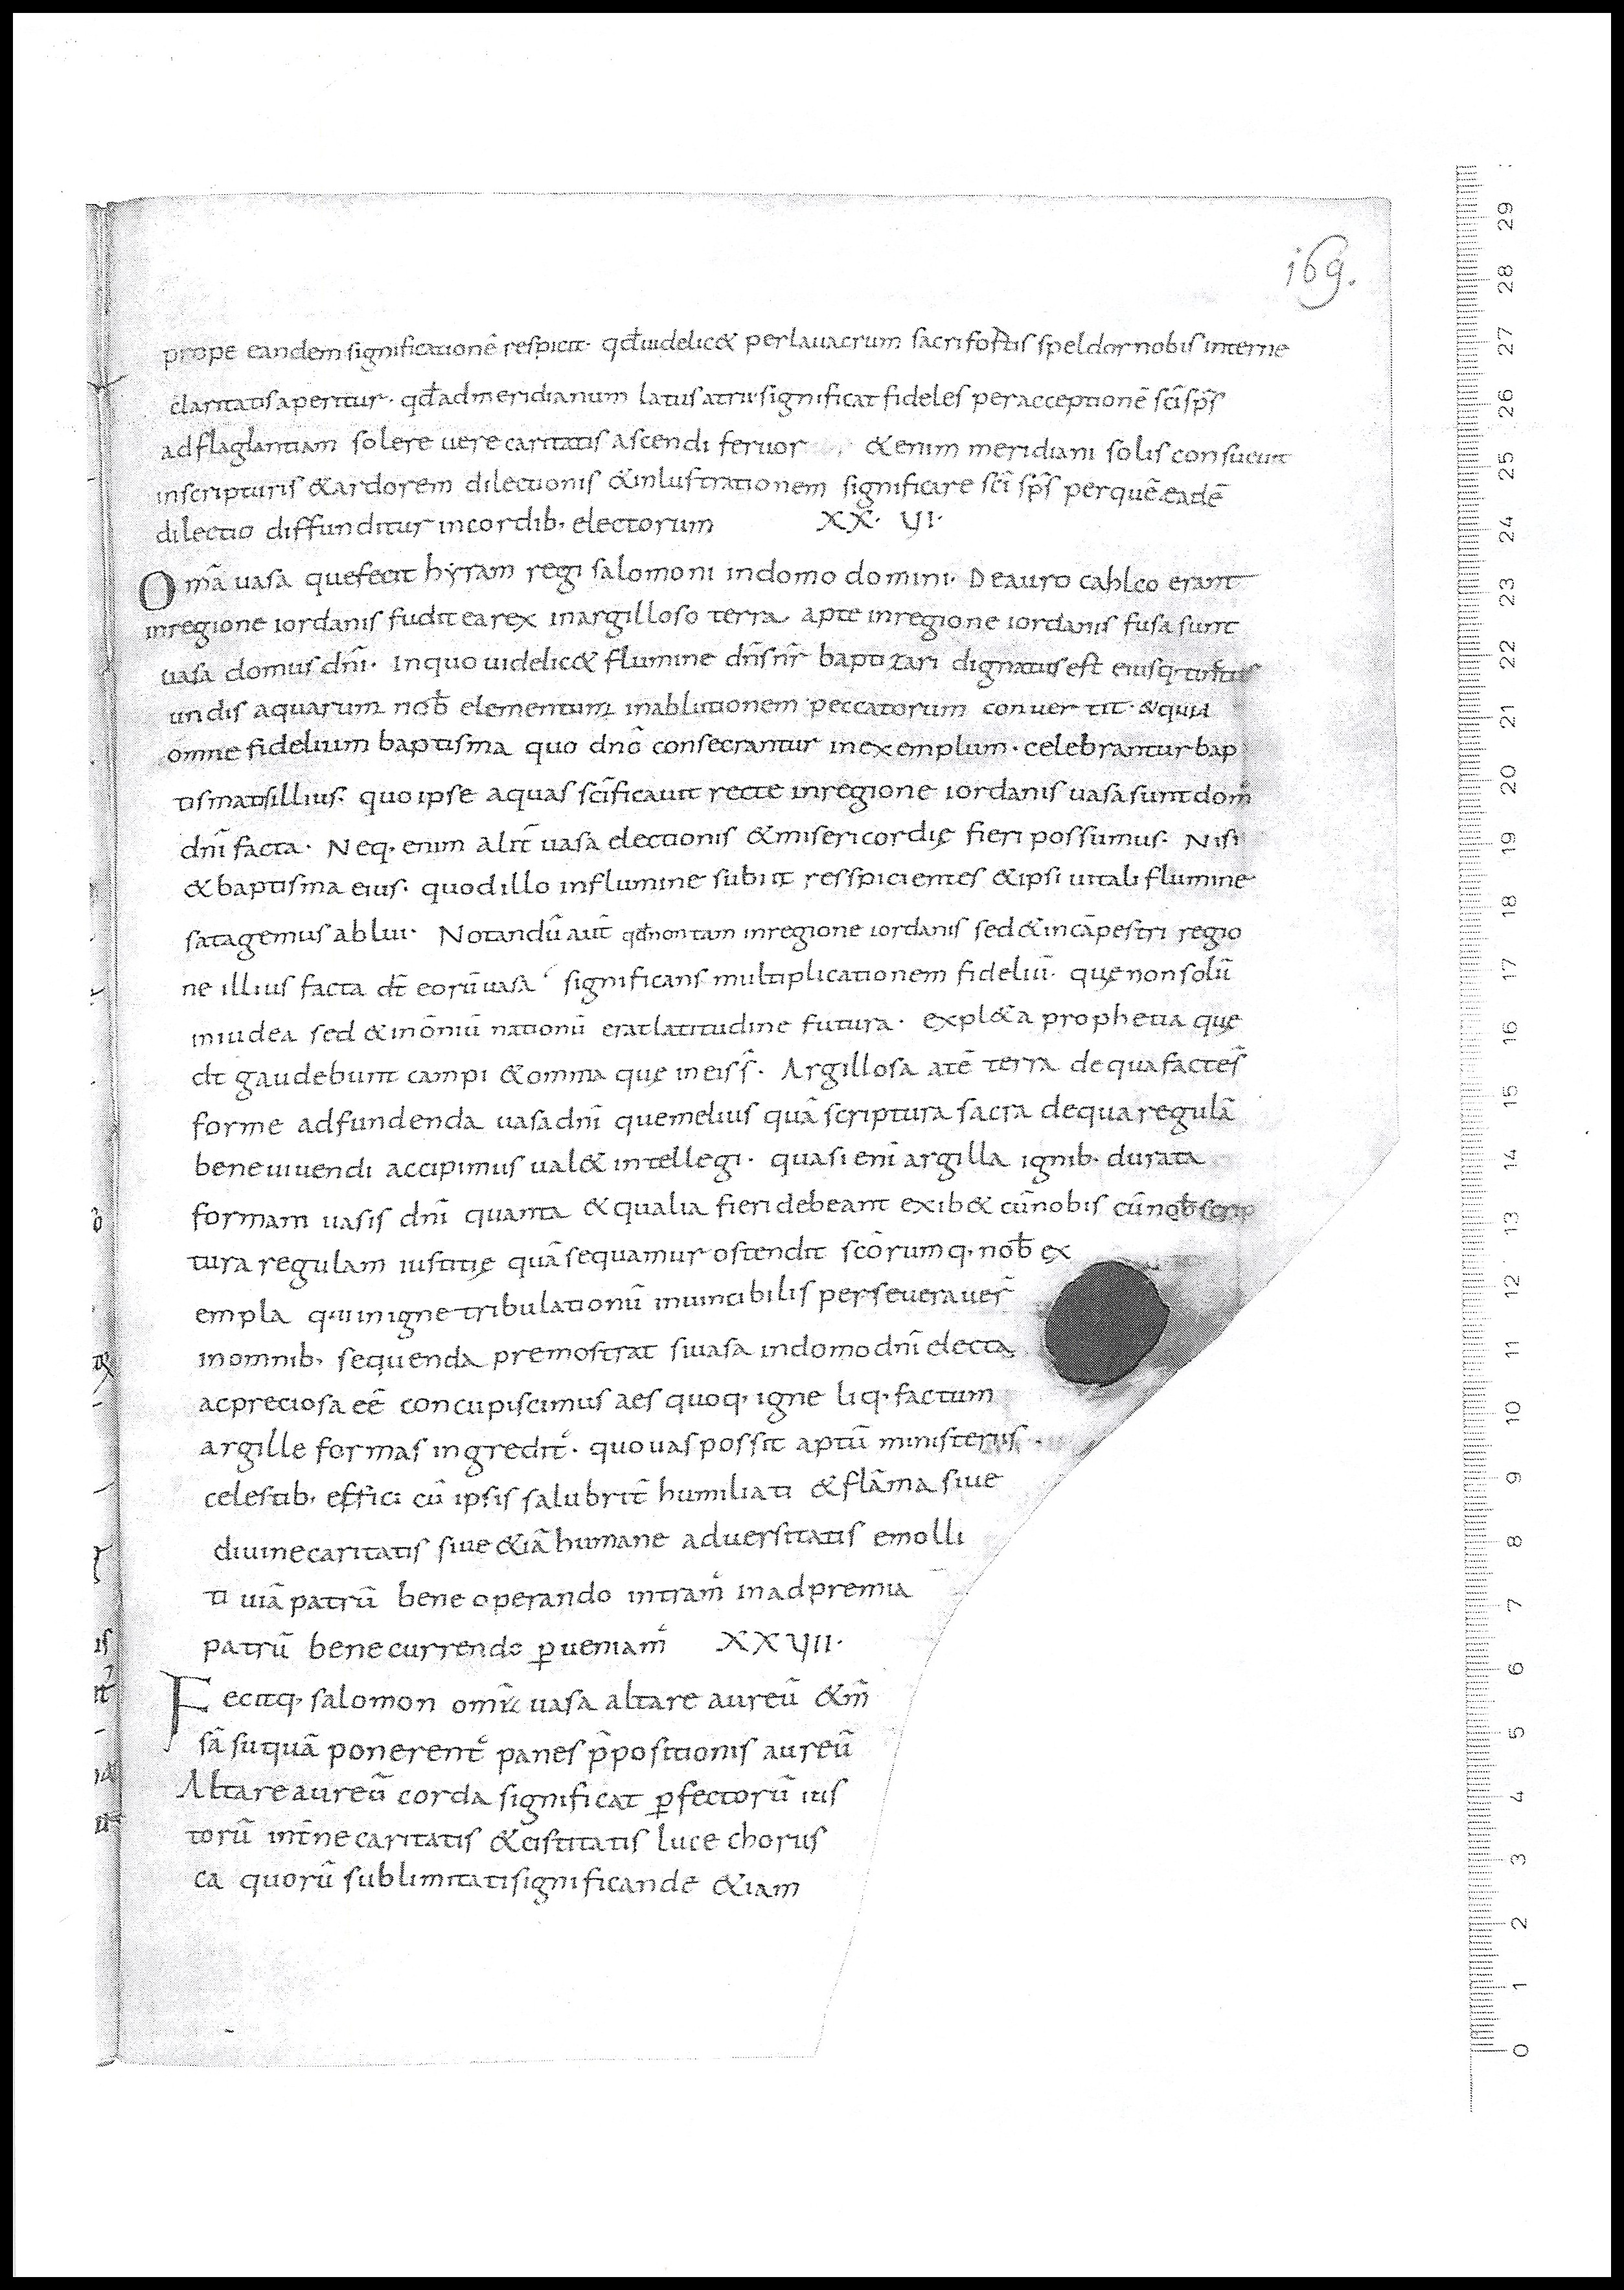 169.
prope eandem significationē respicit· qđ uidelic& per lauacrum sacri fontis speldor nobis interne
claritatis aperitur· qđ ad meridianum latus atrii significat fideles per acceptionē sc̄i sp̄s
ad flaglantiam solere uere caritatis ascendi feruor &enim meridiani solis consueuit
in scripturis & ardorem dilectionis & inlustrationem significare sc̄i sp̄s per quē eadē
dilectio diffunditur in cordib· electorum XX· VI·
Om̄a uasa que fecit hyram regi salomoni in domo domini· De auro cahlco erant
in regione iordanis fudit ea rex in argilloso terra apte in regione iordanis fusa sunt
uasa domus dn̄i· In quo uidelic& flumine dn̄s nr̄ baptizari dignatus est eiusq·
undis aquarum nob̄ elementum in ablutionem peccatorum conuertit· & quia
omne fidelium baptisma quo dnō consecrantur in exemplum· celebrantur bap
tismatis illius· quo ipse aquas sc̄ificauit recte in regione iordanis uasa sunt dom̄
dn̄i facta· Neq· enim alit̄ uasa electionis & misericordię fieri possumus· Nisi
& baptisma eius· quod illo in flumine subiit resspicientes & ipsi uitali flumine
satagemus ablui· Notandū aut̄ qđ non tam in regione iordanis sed & in cāpestri regio
ne illius facta dt̄ eorū uasa significans multiplicationem fideliū· quę non solū
in iudea sed & in ōniū nationū erat latitudine futura· expl& a prophetia quę
dt̄ gaudebunt campi & omnia quę in eis s̄· Argillosa atē terra de qua factes̄
forme ad fundenda uasa dn̄i que melius quā scriptura sacra de qua regulā
bene uiuendi accipimus ual& intellegi· quasi enī argilla ignib· durata
formam uasis dn̄i quanta & qualia fieri debeant exib& cū nobis cū nob̄ scrip
tura regulam iustitię quā sequamur ostendit scōrumq· nob̄ ex
empla qui in igne tribulationū inuincibilis perseuerauer̄
in omnib· sequenda premostrat si uasa in domo dn̄i electa
ac preciosa eē concupiscimus aes quoq· igne liq· factum
argille formas ingredit̄· quo uas possit aptū ministeriis
celestib· effici cū ipsis salubrit̄ humiliati & flāma siue
diuine caritatis siue &iā humane aduersitatis emolli
ti uiā patrū bene operando intram̄ in ad premia
patrū bene currendo ꝑueniam̄ XXVII·
Fecitq· salomon omīa uasa altare aureū & m̄
sā suꝑ quā ponerent̄ panes p̄positionis aureū
Altare aureū corda significat ꝑfectorū ius
torū int̄ne caritatis & cistitatis luce chorus
ca quorū sublimitati significande &iam
0 1 2 3 4 5 6 7 8 9 10 11 12 13 14 15 16 17 18 19 20 21 22 23 24 25 26 27 28 29